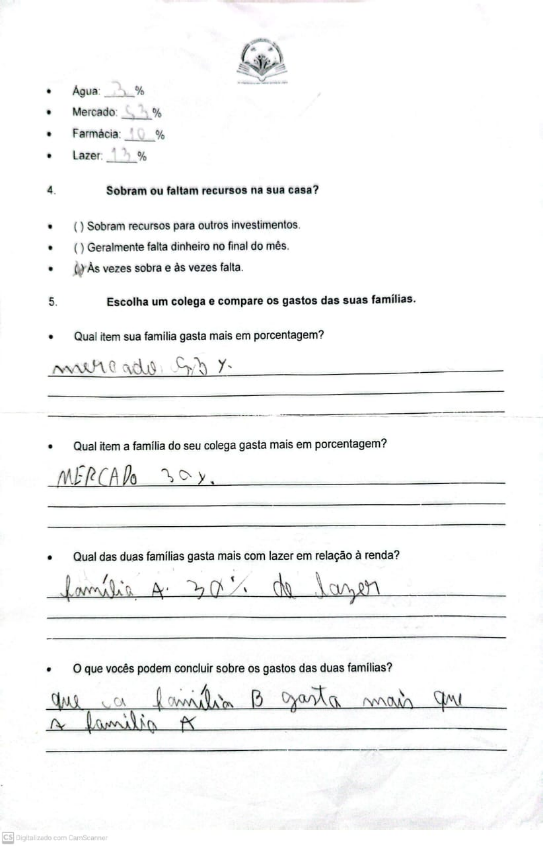 • Água: 3 %
• Mercado: 53 %
• Farmácia: 10 %
• Lazer: 13 %
4. Sobram ou faltam recursos na sua casa?
• ( ) Sobram recursos para outros investimentos.
• ( ) Geralmente falta dinheiro no final do mês.
• (x) Às vezes sobra e às vezes falta.
5. Escolha um colega e compare os gastos das suas famílias.
• Qual item sua família gasta mais em porcentagem?
mercado 53 %.
• Qual item a família do seu colega gasta mais em porcentagem?
MERCADO 30 %.
• Qual das duas famílias gasta mais com lazer em relação à renda?
família A. 30% de lazer
• O que vocês podem concluir sobre os gastos das duas famílias?
que a família B gasta mais que
a família A
CS Digitalizado com CamScanner